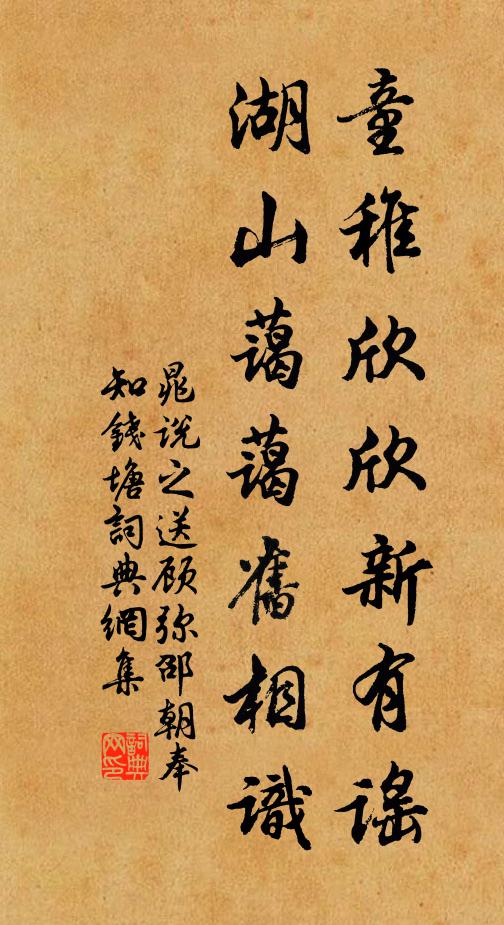 童稚欣欣新有謠
湖山藹藹舊相識
晁说之送顾弥邵朝奉
知錢塘詞典網集
詞典網印